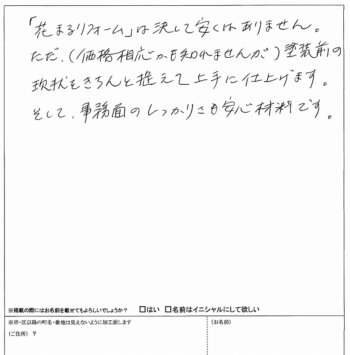 「花まるリフォーム」は決して安くはありません。
ただ、(価格相応かも知れませんが)塗装前の
現状をきちんと捉えて上手に仕上げます。
そして、事務面のしっかりさも安心材料です。
※掲載の際にはお名前を載せてもよろしいでしょうか? □はい □名前はイニシャルにして欲しい
※市・区以降の町名・番地は見えないように加工致します
(ご住所) 〒
(お名前)